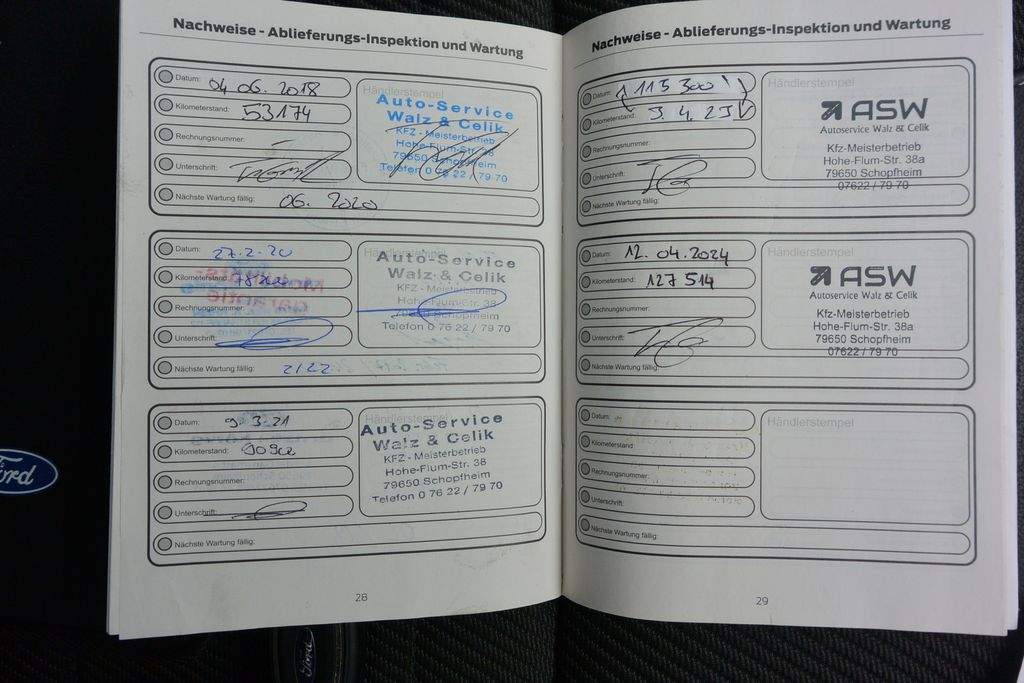 Nachweise - Ablieferungs-Inspektion und Wartung
Datum: 04 06. 2018
Kilometerstand: 53174
Rechnungsnummer: -
Unterschrift:
Nächste Wartung fällig: 06. 2020
Händlerstempel
Auto-Service
Walz & Celik
KFZ - Meisterbetrieb
Hohe-Flum-Str. 38
79650 Schopfheim
Telefon 0 76 22 / 79 70
Datum: 27.2.20
Kilometerstand:
Rechnungsnummer:
Unterschrift:
Nächste Wartung fällig: 2/22
Händlerstempel
Auto-Service
Walz & Celik
KFZ - Meisterbetrieb
Hohe-Flum-Str. 38
79650 Schopfheim
Telefon 0 76 22 / 79 70
Datum: 9.3.21
Kilometerstand:
Rechnungsnummer:
Unterschrift:
Nächste Wartung fällig:
Händlerstempel
Auto-Service
Walz & Celik
KFZ - Meisterbetrieb
Hohe-Flum-Str. 38
79650 Schopfheim
Telefon 0 76 22 / 79 70
28
Nachweise - Ablieferungs-Inspektion und Wartung
Datum: 115 300
Kilometerstand: 3.4.23
Rechnungsnummer:
Unterschrift:
Nächste Wartung fällig:
Händlerstempel
ASW
Autoservice Walz & Celik
Kfz-Meisterbetrieb
Hohe-Flum-Str. 38a
79650 Schopfheim
07622 / 79 70
Datum: 12. 04. 2024
Kilometerstand: 127 514
Rechnungsnummer:
Unterschrift:
Nächste Wartung fällig:
Händlerstempel
ASW
Autoservice Walz & Celik
Kfz-Meisterbetrieb
Hohe-Flum-Str. 38a
79650 Schopfheim
07622 / 79 70
Datum:
Kilometerstand:
Rechnungsnummer:
Unterschrift:
Nächste Wartung fällig:
Händlerstempel
29
Ford
Ford